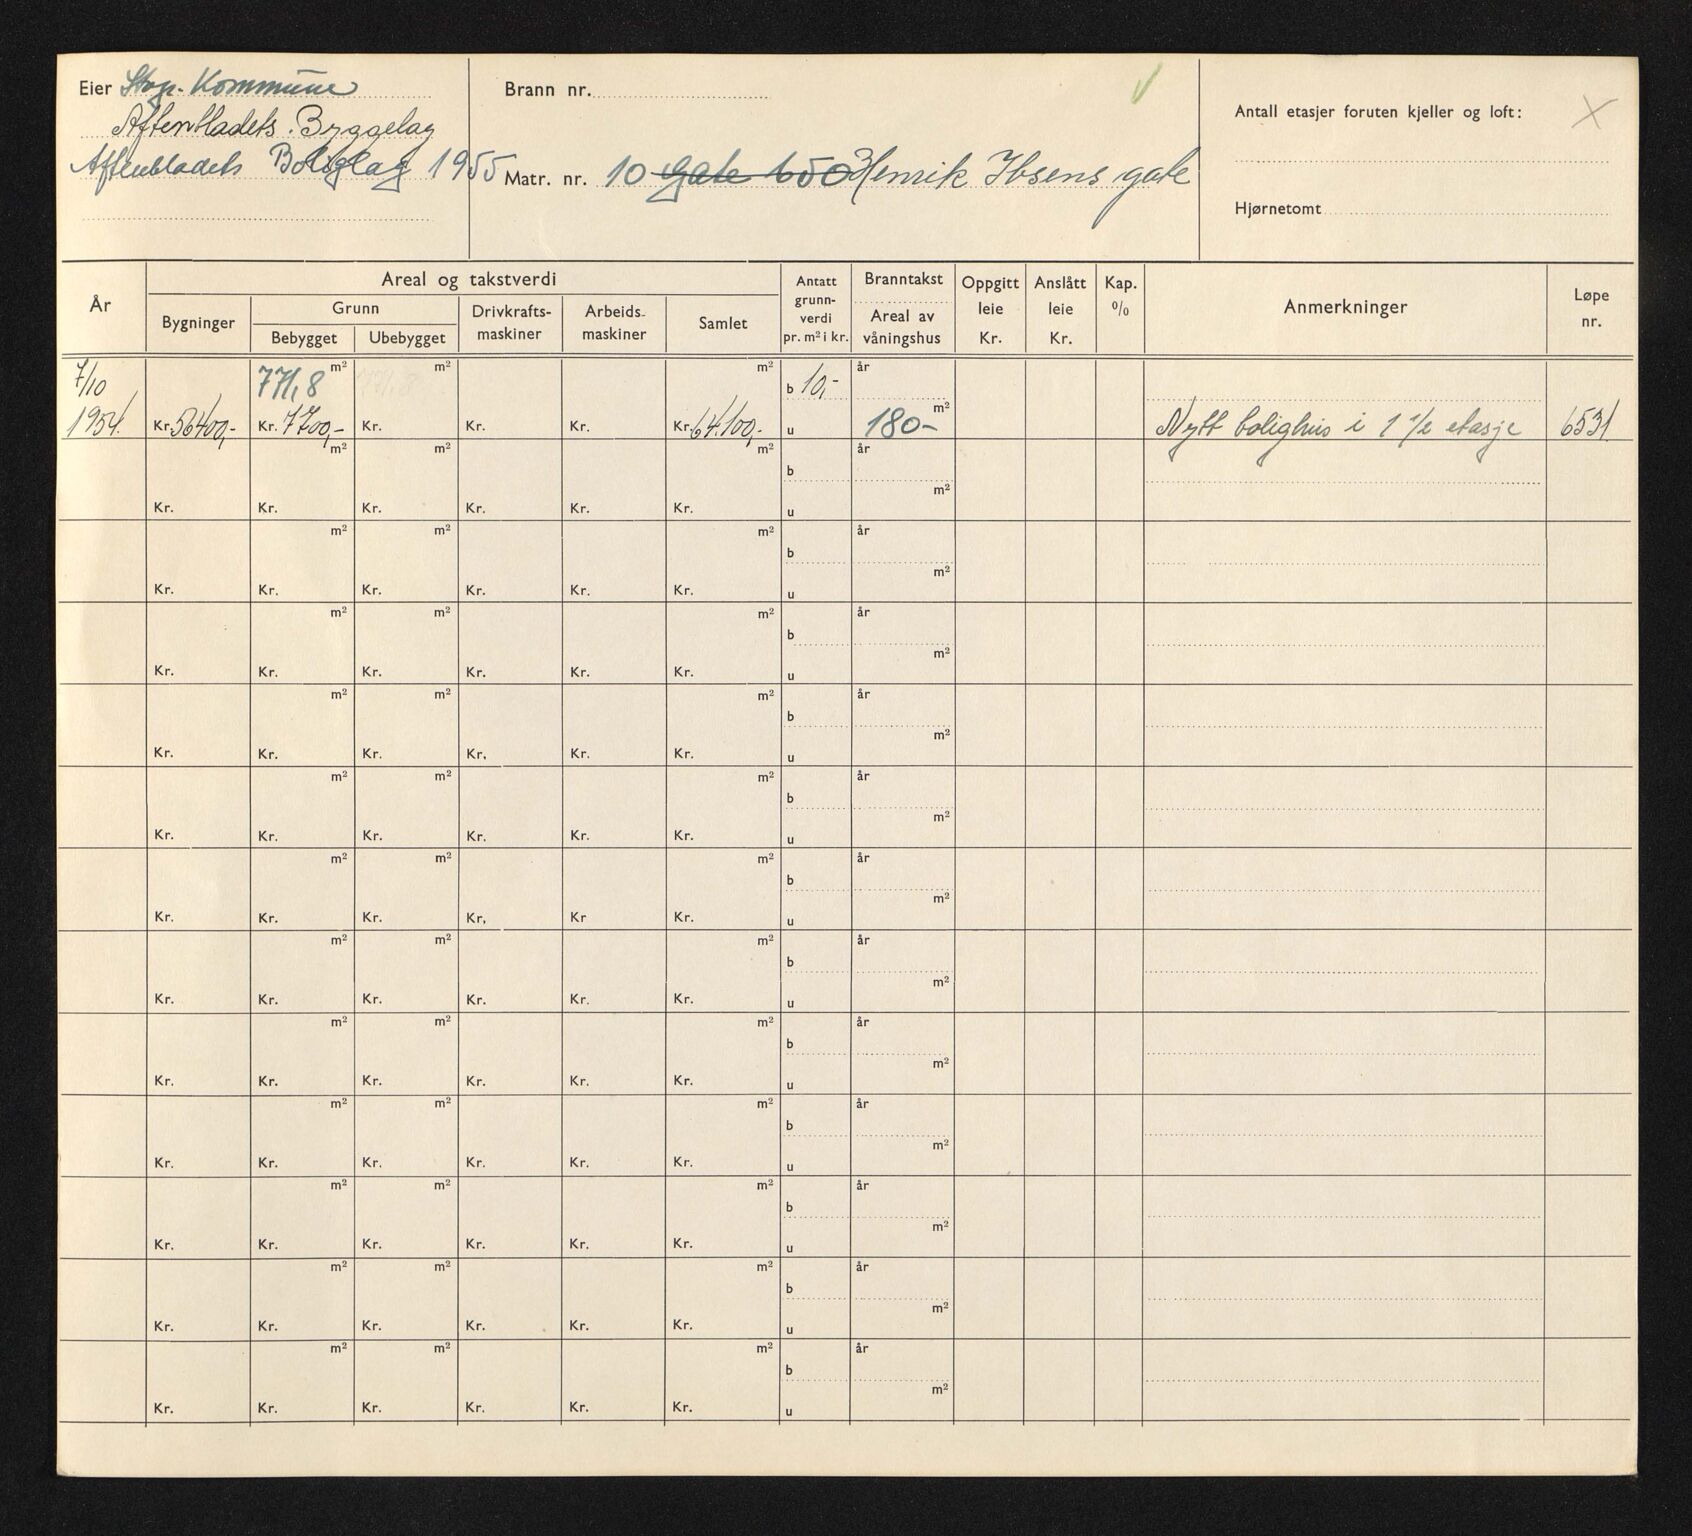 Eier Stvgr. Kommune
Aftenbladets Byggelag
Aftenbladets Boliglag 1955
Brann nr.
Matr. nr. 10 Gate 650 Henrik Ibsens gate
Antall etasjer foruten kjeller og loft:
Hjørnetomt
År
Areal og takstverdi
Bygninger
Grunn
Bebygget
Ubebygget
Drivkrafts-
maskiner
Arbeids-
maskiner
Samlet
Antatt
grunn-
verdi
pr. m² i kr.
Branntakst
Areal av
våningshus
Oppgitt
leie
Kr.
Anslått
leie
Kr.
Kap.
%
Anmerkninger
Løpe
nr.
7/10 771,8 m² m² m² b 10,- år
1954. Kr. 56400,- Kr. 7700,- Kr. Kr. Kr. Kr. 64.100,- u 180- m² Nytt bolighus i 1 1/2 etasje 6531
m² m² m² b år
Kr. Kr. Kr. Kr. Kr. Kr. u m²
m² m² m² b år
Kr. Kr. Kr. Kr. Kr. Kr. u m²
m² m² m² b år
Kr. Kr. Kr. Kr. Kr. Kr. u m²
m² m² m² b år
Kr. Kr. Kr. Kr. Kr. Kr. u m²
m² m² m² b år
Kr. Kr. Kr. Kr. Kr. Kr. u m²
m² m² m² b år
Kr. Kr. Kr. Kr, Kr Kr. u m²
m² m² m² b år
Kr. Kr. Kr. Kr. Kr. Kr. u m²
m² m² m² b år
Kr. Kr. Kr. Kr. Kr. Kr. u m²
m² m² m² b år
Kr. Kr. Kr. Kr. Kr. Kr. u m²
m² m² m² b år
Kr. Kr. Kr. Kr. Kr. Kr. u m²
m² m² m² b år
Kr. Kr. Kr. Kr. Kr. Kr. u m²
m² m² m² b år
Kr. Kr. Kr. Kr. Kr. Kr. u m²